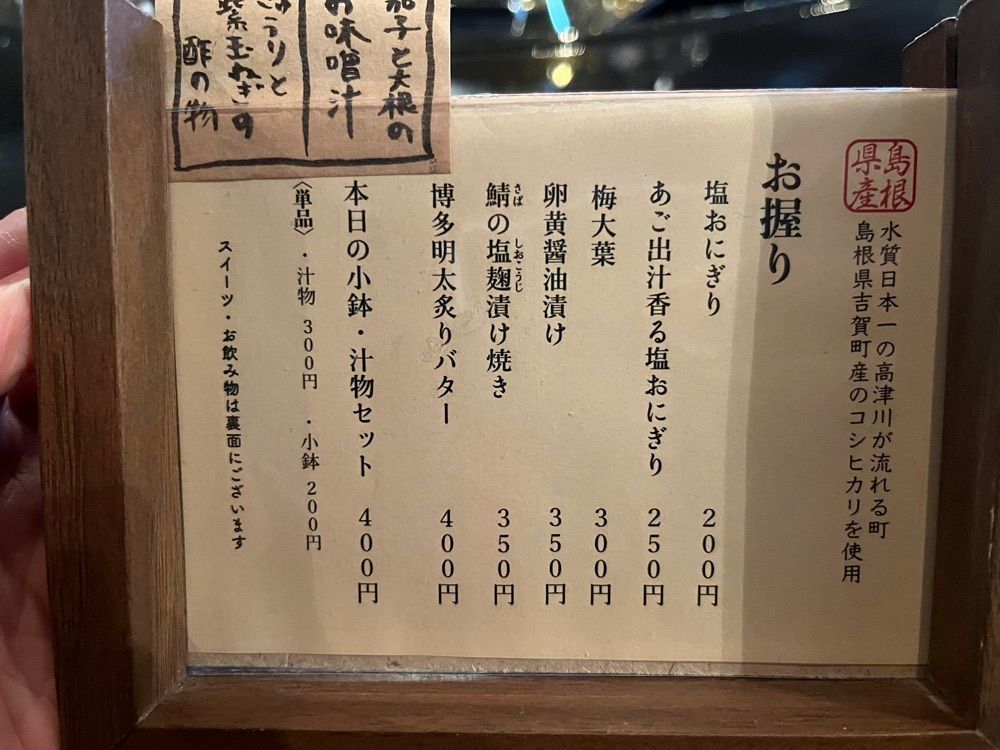 島根県産
水質日本一の高津川が流れる町
島根県吉賀町産のコシヒカリを使用
お握り
塩おにぎり 200円
あご出汁香る塩おにぎり 250円
梅大葉 300円
卵黄醤油漬け 350円
鯖の塩麹漬け焼き 350円
さば しおこうじ
博多明太炙りバター 400円
本日の小鉢・汁物セット 400円
〈単品〉・汁物 300円 ・小鉢 200円
スイーツ・お飲み物は裏面にございます
茄子と大根の
お味噌汁
きゅうりと
紫玉ねぎの
酢の物